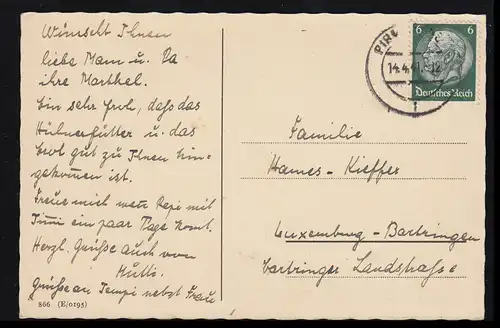 Wünscht Ihnen
liebe Mam u. Pa
ihre Marthel.
Bin sehr froh, daß das
Hühnerfutter u. das
Brot gut zu Ihnen hin-
gekommen ist.
Freue mich wenn Pepi mit
ein paar Tage komt.
Herzl. Grüße auch von
Mutti.
Grüße an nebst Frau
866 (E/0195)
PIR
14.4.41
6 6
Deutsches Reich
Familie
Hames-Kieffer
Luxemburg-Bartringen
Bartringer Landstraße